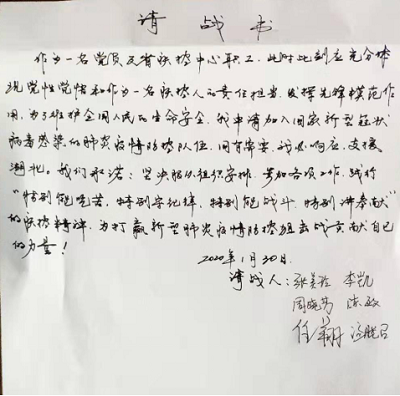 请战书
作为一名党员及省疾控中心职工，此时此刻应充分体
现党性党悟和作为一名疾控人的责任担当，发挥先锋模范作
用，为了维护全国人民的生命安全，我申请加入国家新型冠状
病毒感染的肺炎疫情防控队伍，国有需要，我必响应，支援
湖北。我们承诺：坚决服从组织安排，参加各项工作，践行
“特别能吃苦，特别守纪律，特别能战斗，特别讲奉献”
的疾控精神，为打赢新型肺炎疫情防控阻击战贡献自己
的力量！
2020年1月30日.
请战人： 李凯
周晓芳 陈敏